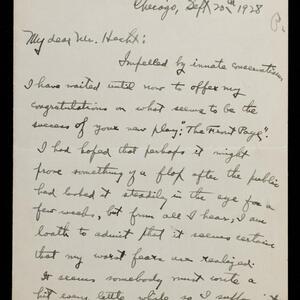 Chicago, Sept 20th 1928
My dear Mr. Hecht:
Impelled by innate conservatism
I have waited until now to offer my
congratulations on what seems to be the
success of your new play: "The Front Page".
I had hoped that perhaps it might
prove something of a flop after the public
had looked it steadily in the eye for a
few weeks, but from all I hear, I am
loath to admit that it seems certain
that my worst fears are realized.
It seems somebody must write a
hit every little while so I suffer it